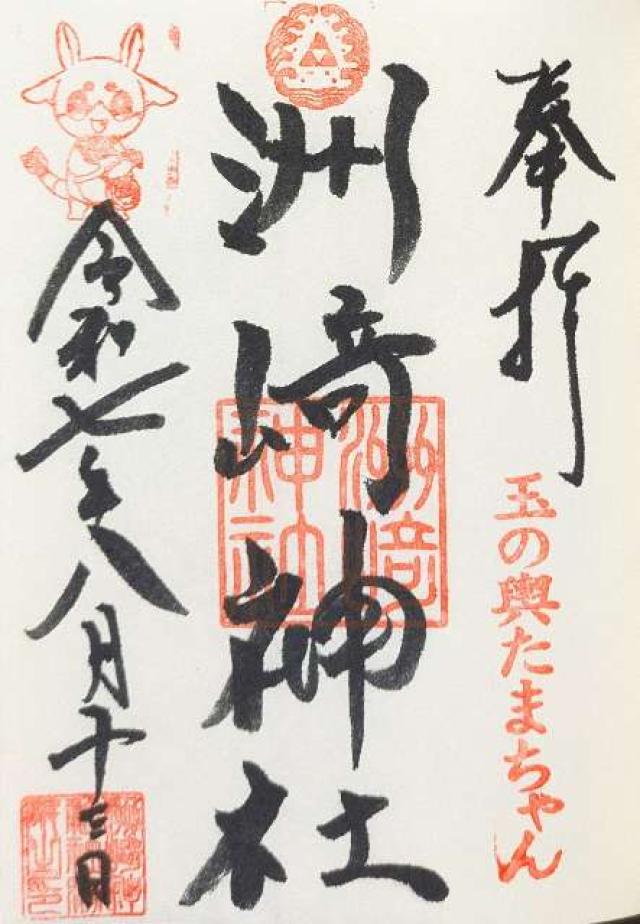 奉拝
玉の輿たまちゃん
洲崎神社
洲崎神社
令和七年八月十三日